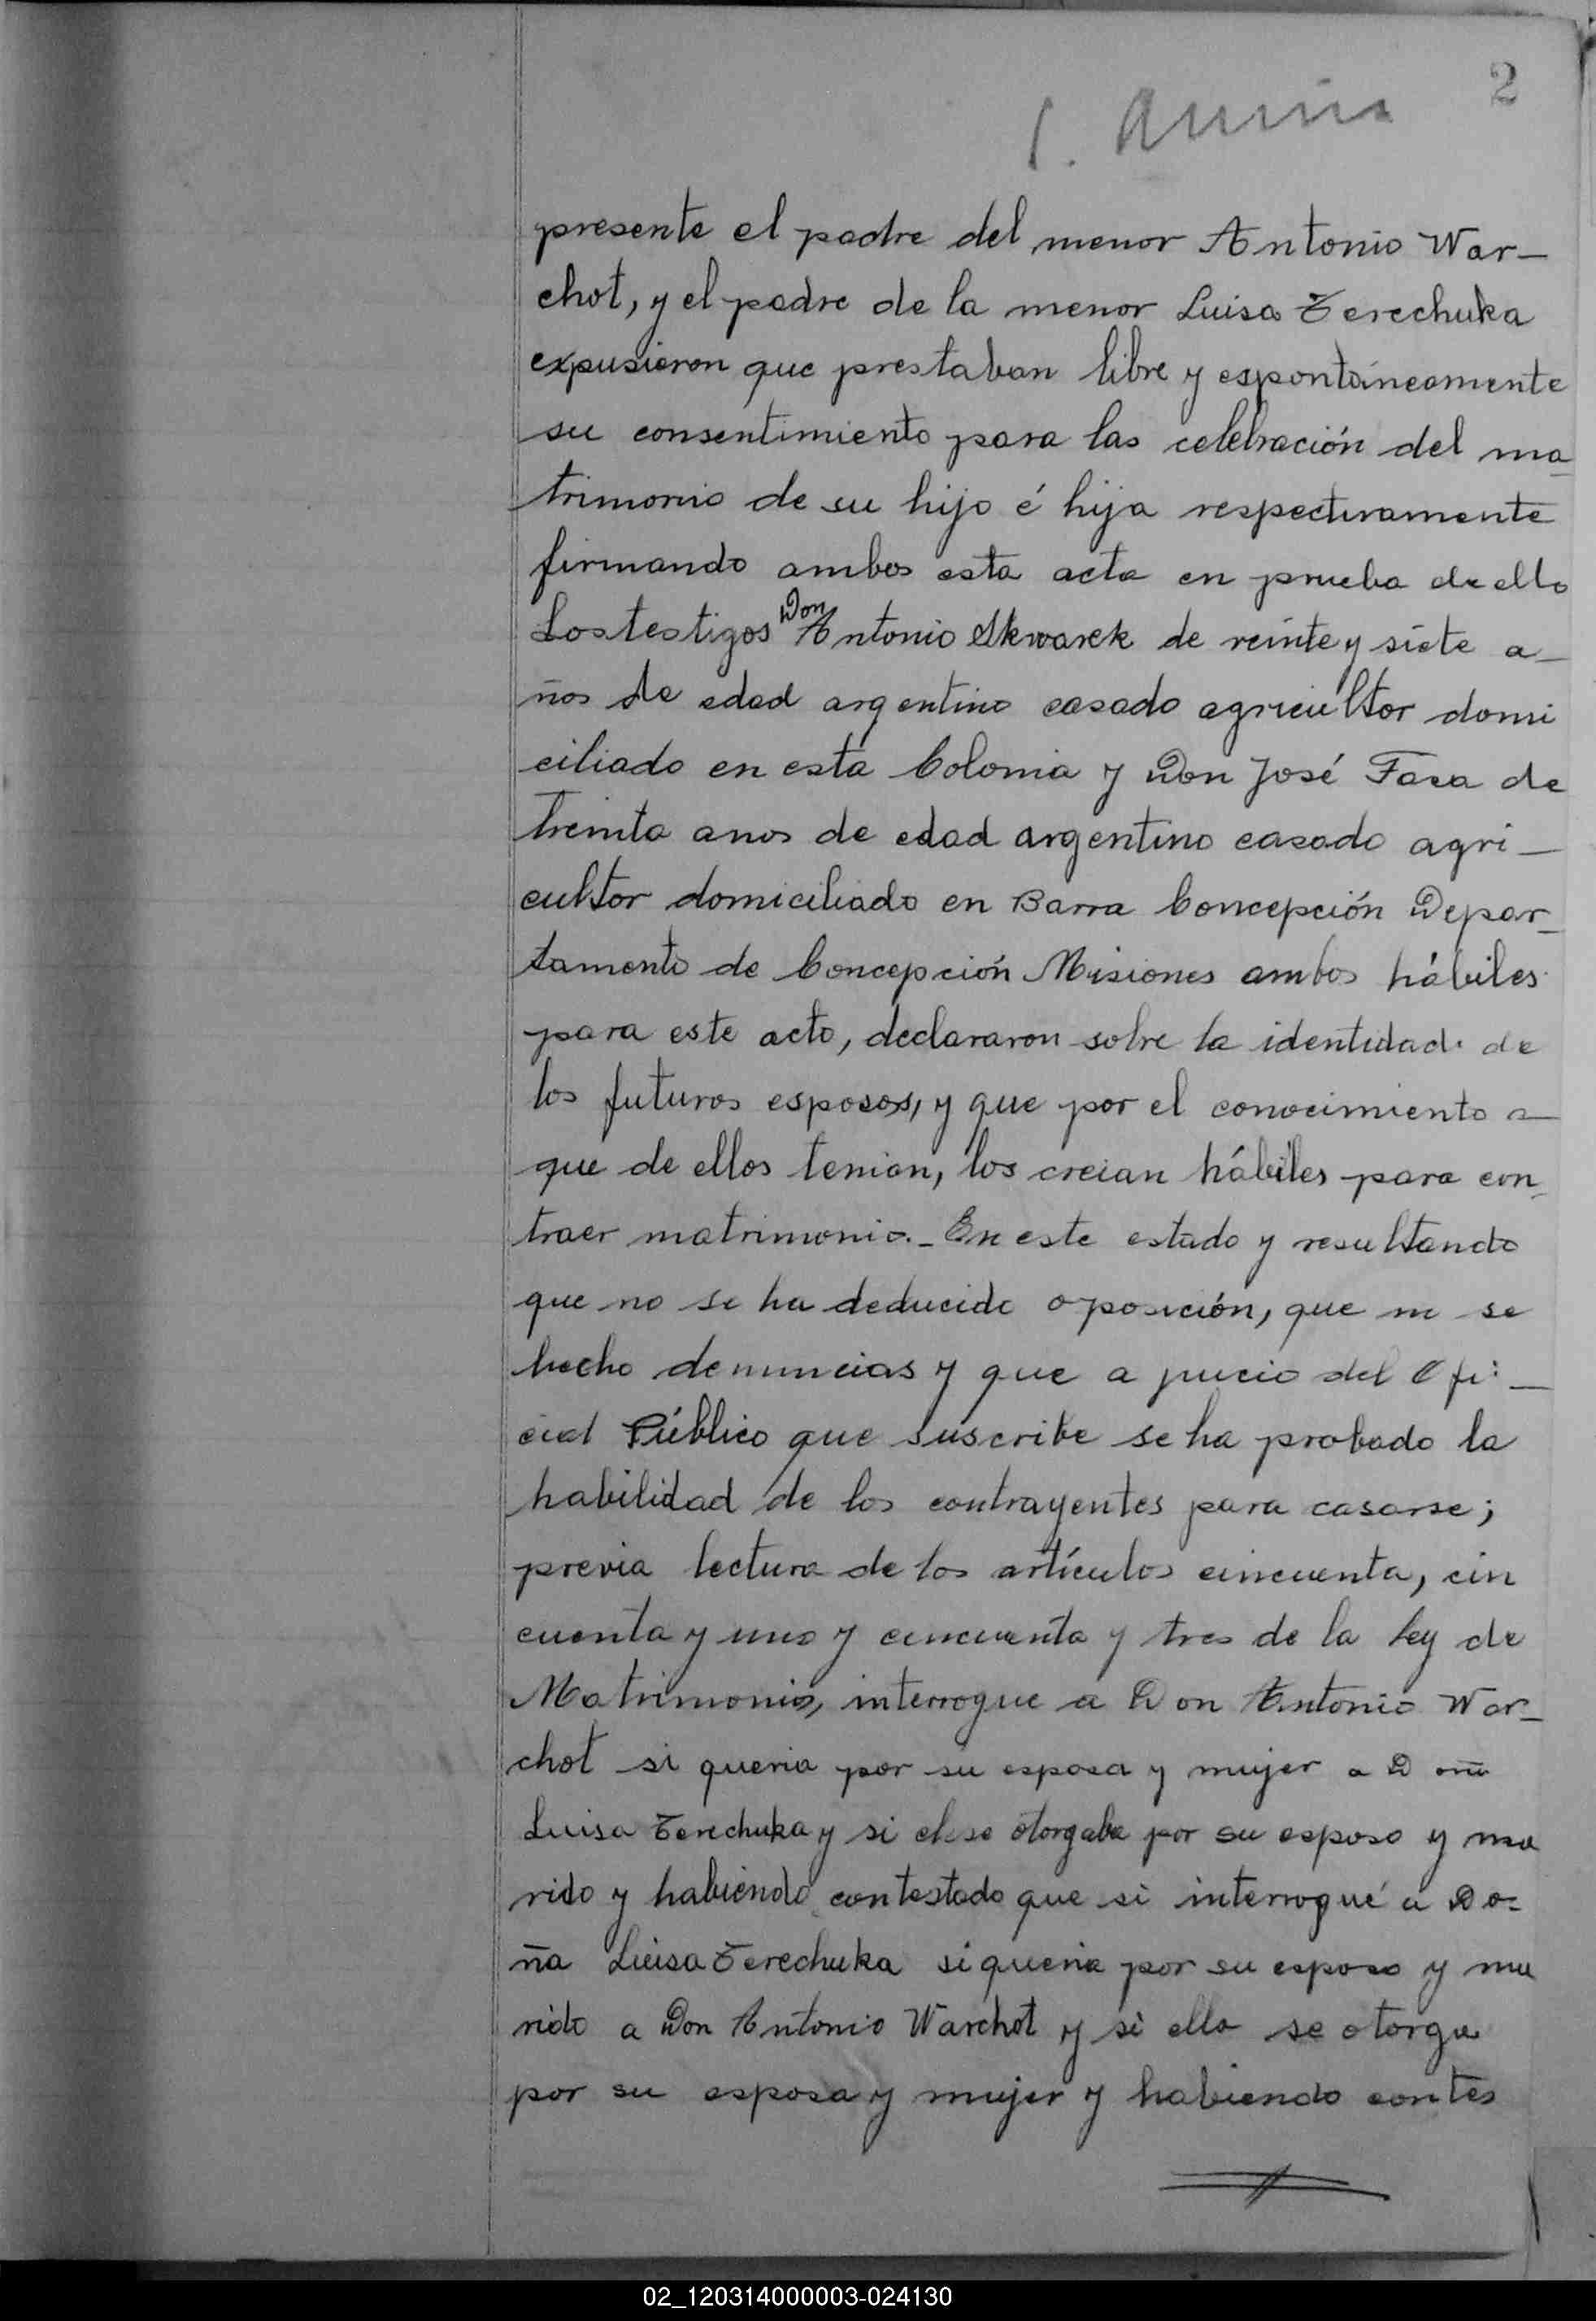 2
presente el padre del menor Antonio War-
chot, y el padre de la menor Luisa Terechuka
expusieron que prestaban libre y espontáneamente
su consentimiento para las celebración del ma
trimonio de su hijo é hija respectivamente
firmando ambos esta acta en prueba de ello
Los testigos Don Antonio Skwarek de veinte y siete a-
ños de edad argentino casado agricultor domi
ciliado en esta Colonia y Don José Fasa de
treinta anos de edad argentino casado agri-
cultor domiciliado en Barra Concepción Depar-
tamento de Concepción Misiones ambos hábiles
para este acto, declararon sobre la identidad de
los futuros esposos, y que por el conocimiento a
que de ellos tenian, los creian hábiles para con-
traer matrimonio.- En este estado y resultando
que no se ha deducido oposición, que ni se
hecho denuncias y que a juicio del Ofi-
cial Público que suscribe se ha probado la
habilidad de los contrayentes para casarse;
previa lectura de los artículos cincuenta, cin
cuenta y uno y cincuenta y tres de la ley de
Matrimonio, interrogue a Don Antonio War-
chot si queria por su esposa y mujer a Doñ
Luisa Terechuka y si el se otorgaba por su esposo y ma
rido y habiendo contestado que si interrogué a Do-
ña Luisa Terechuka si queria por su esposo y ma
rido a Don Antonio Warchot y si ella se otorga
por su esposa y mujer y habiendo contes
02_120314000003-024130